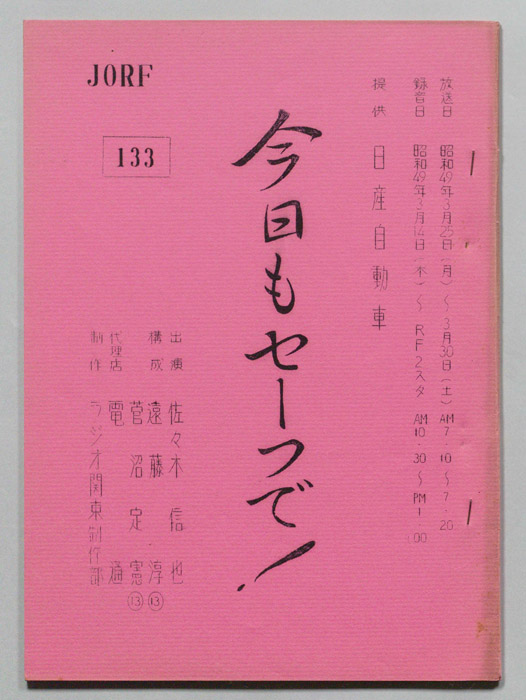 JORF
133
放送日 昭和49年3月25日(月)~3月30日(土) AM7:10~7:20
録音日 昭和49年3月14日(木)~ RF2スタ AM10:30~PM1:00
提供 日産自動車
今日もセーフで!
出演 佐々木信也
構成 遠藤 淳⑬
菅沼定憲⑬
代理店 電通
制作 ラジオ関東制作部